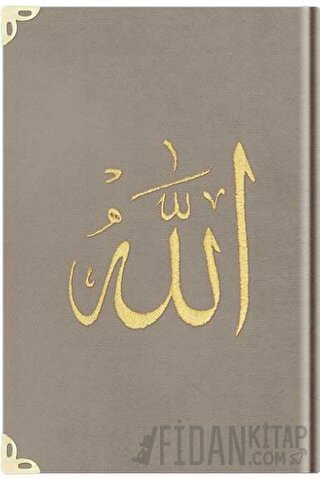 الله
FİDANKİTAP
.COM